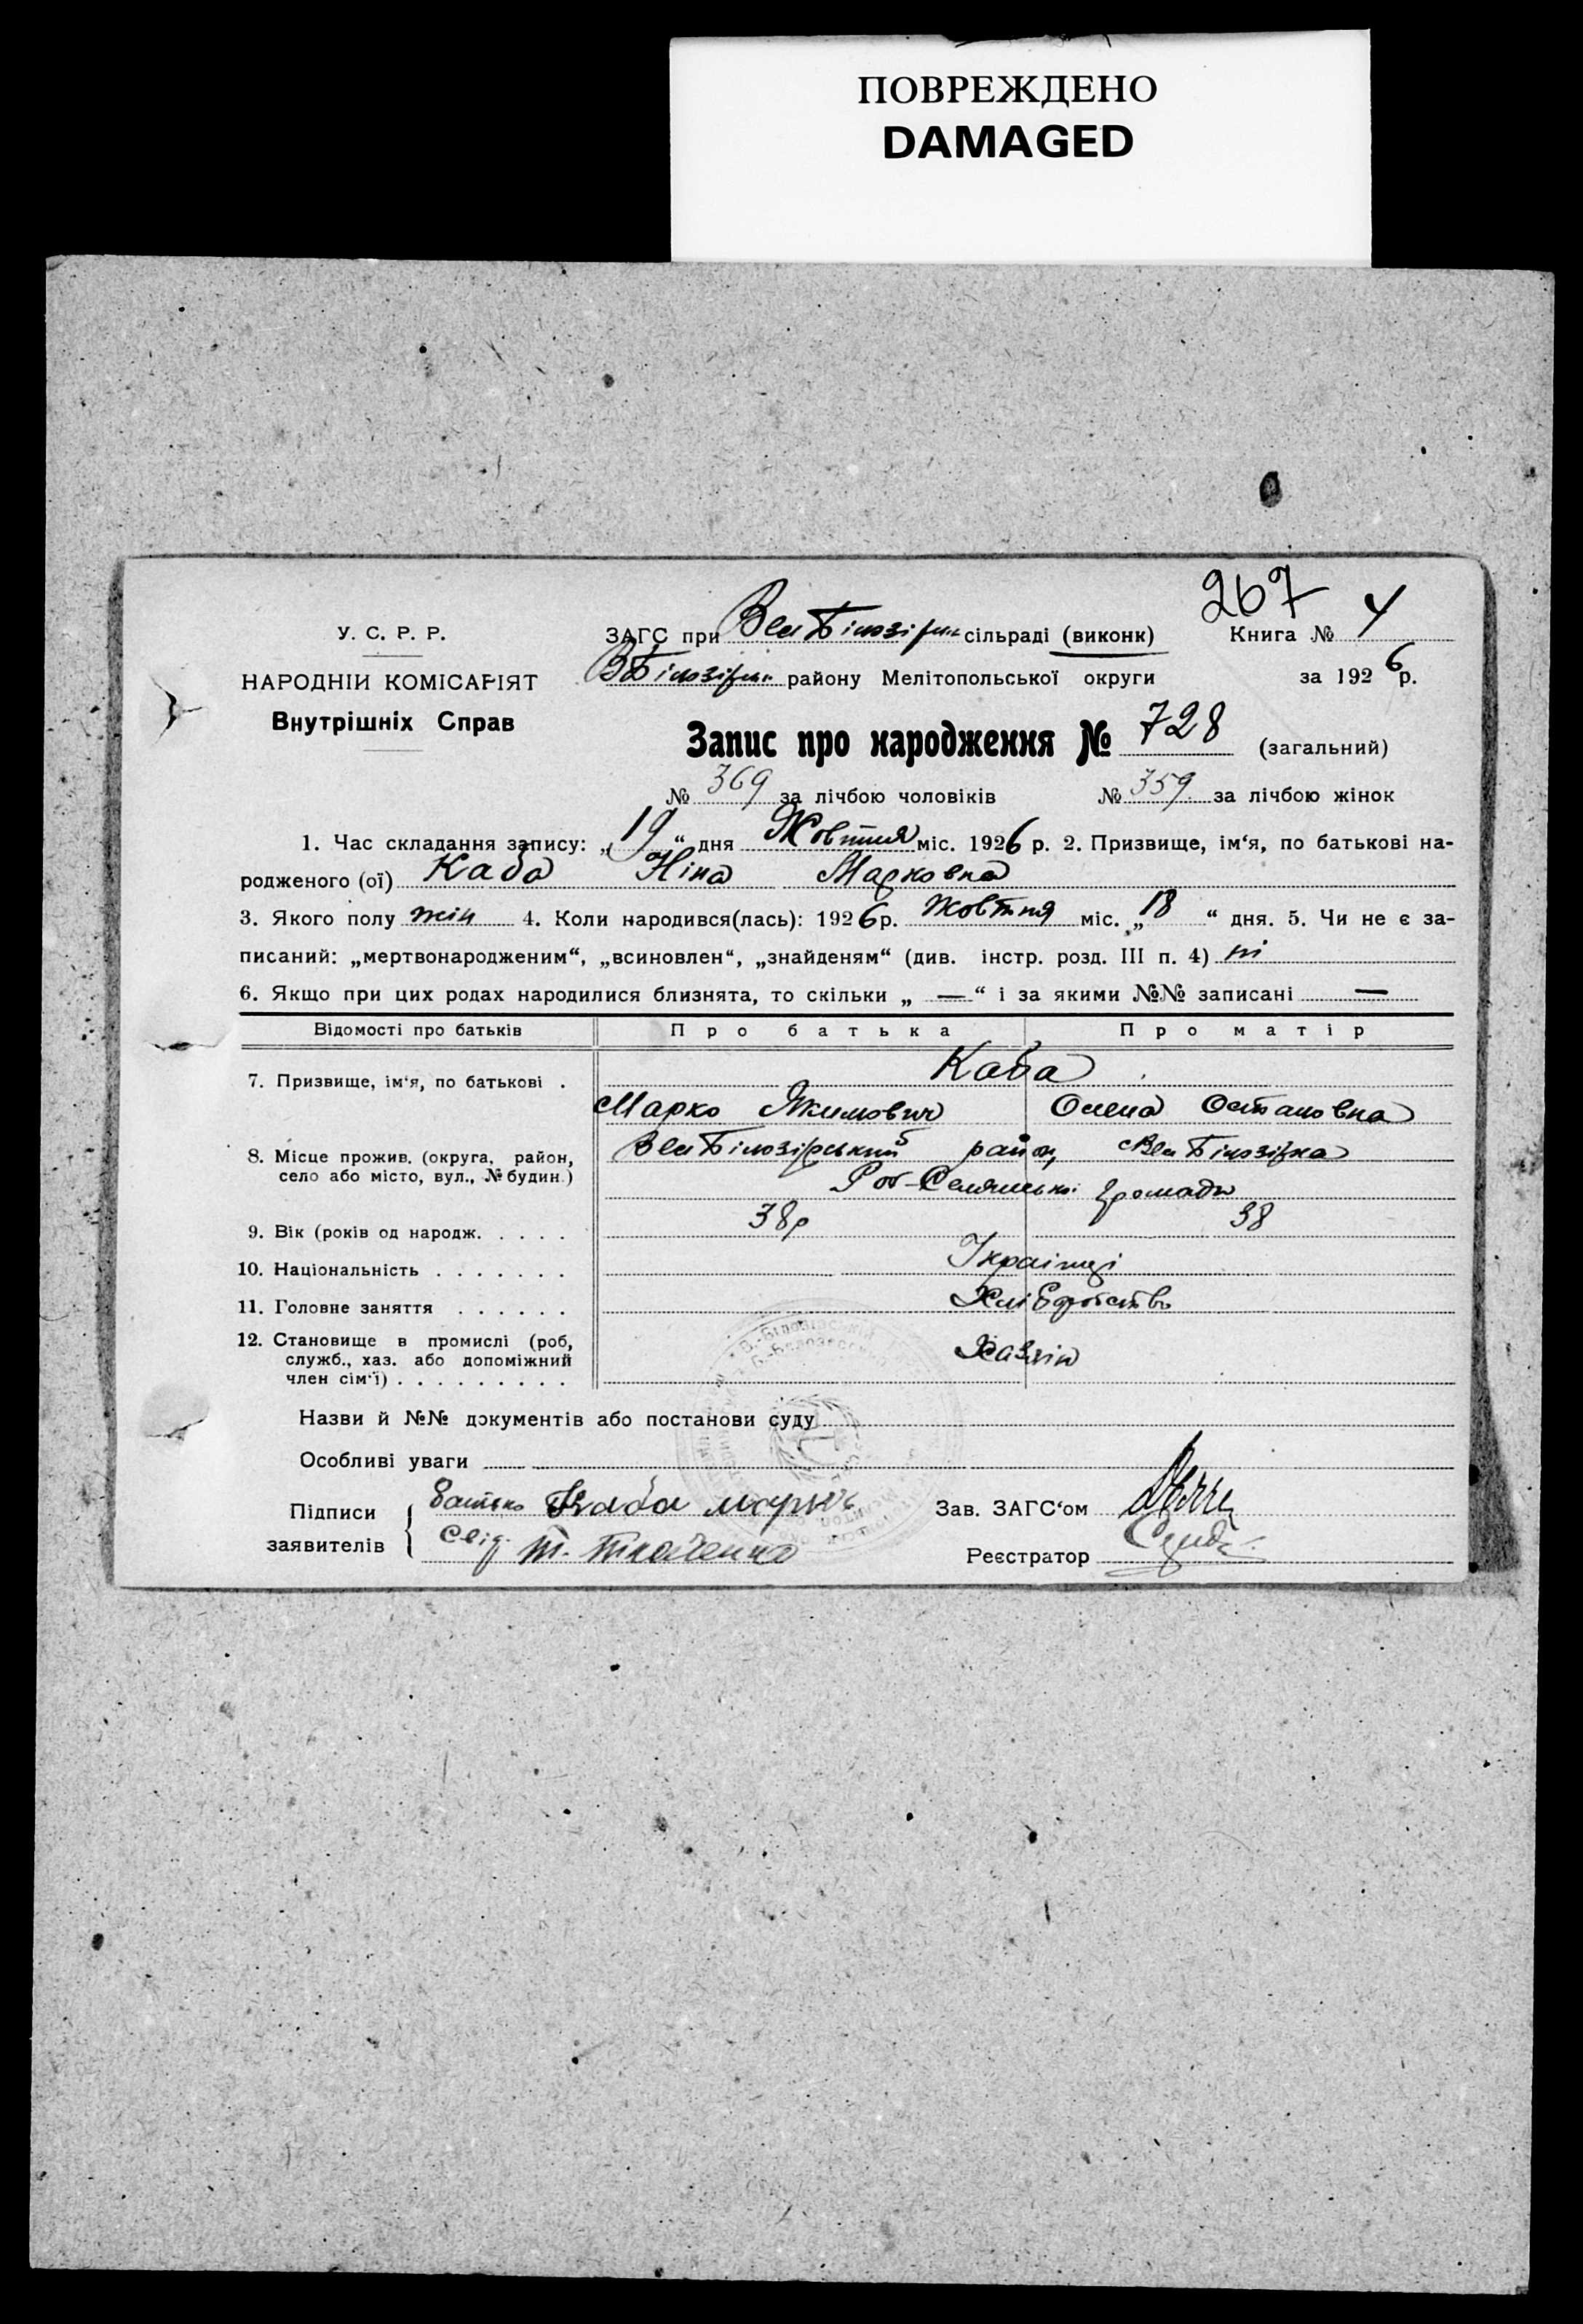 ПОВРЕЖДЕНО
DAMAGED
267
У. С. Р. Р.
НАРОДНІЙ КОМІСАРІЯТ
Внутрішніх Справ
ЗАГС при Вел Білозірк сільраді (виконк) Книга № 4
ВБілозірк району Мелітопольської округи за 1926 р.
Запис про народження № 728 (загальний)
№ 369 за лічбою чоловіків № 359 за лічбою жінок
1. Час складання запису: „19“ дня Жовтня міс. 1926 р. 2. Призвище, ім‘я, по батькові на-
родженого (ої) Каба Ніна Марковна
3. Якого полу жін 4. Коли народився(лась): 1926 р. Жовтня міс. „18“ дня. 5. Чи не є за-
писаний: „мертвонародженим“, „всиновлен“, „знайденям“ (див. інстр. розд. III п. 4) ні
6. Якщо при цих родах народилися близнята, то скільки „ — “ і за якими №№ записані —
Відомості про батьків Про батька Про матір
7. Призвище, ім‘я, по батькові . Каба
Марко Якимович Олена Остаповна
8. Місце прожив. (округа, район, село або місто, вул., № будин.) Вел Білозірський район, Вел Білозірка
Роб-Селянської громади
9. Вік (років од народж. . . . . 38р 38
10. Національність . . . . . . . Українці
11. Головне заняття . . . . . . Хліборобство
12. Становище в промислі (роб,
служб., хаз. або допоміжний
член сім‘ї) . . . . . . . . . Хазяін
Назви й №№ документів або постанови суду
Особливі уваги
Підписи заявителів { батько Каба Марко Зав. ЗАГС‘ом
Свід. Т. Ткаченко Реєстратор